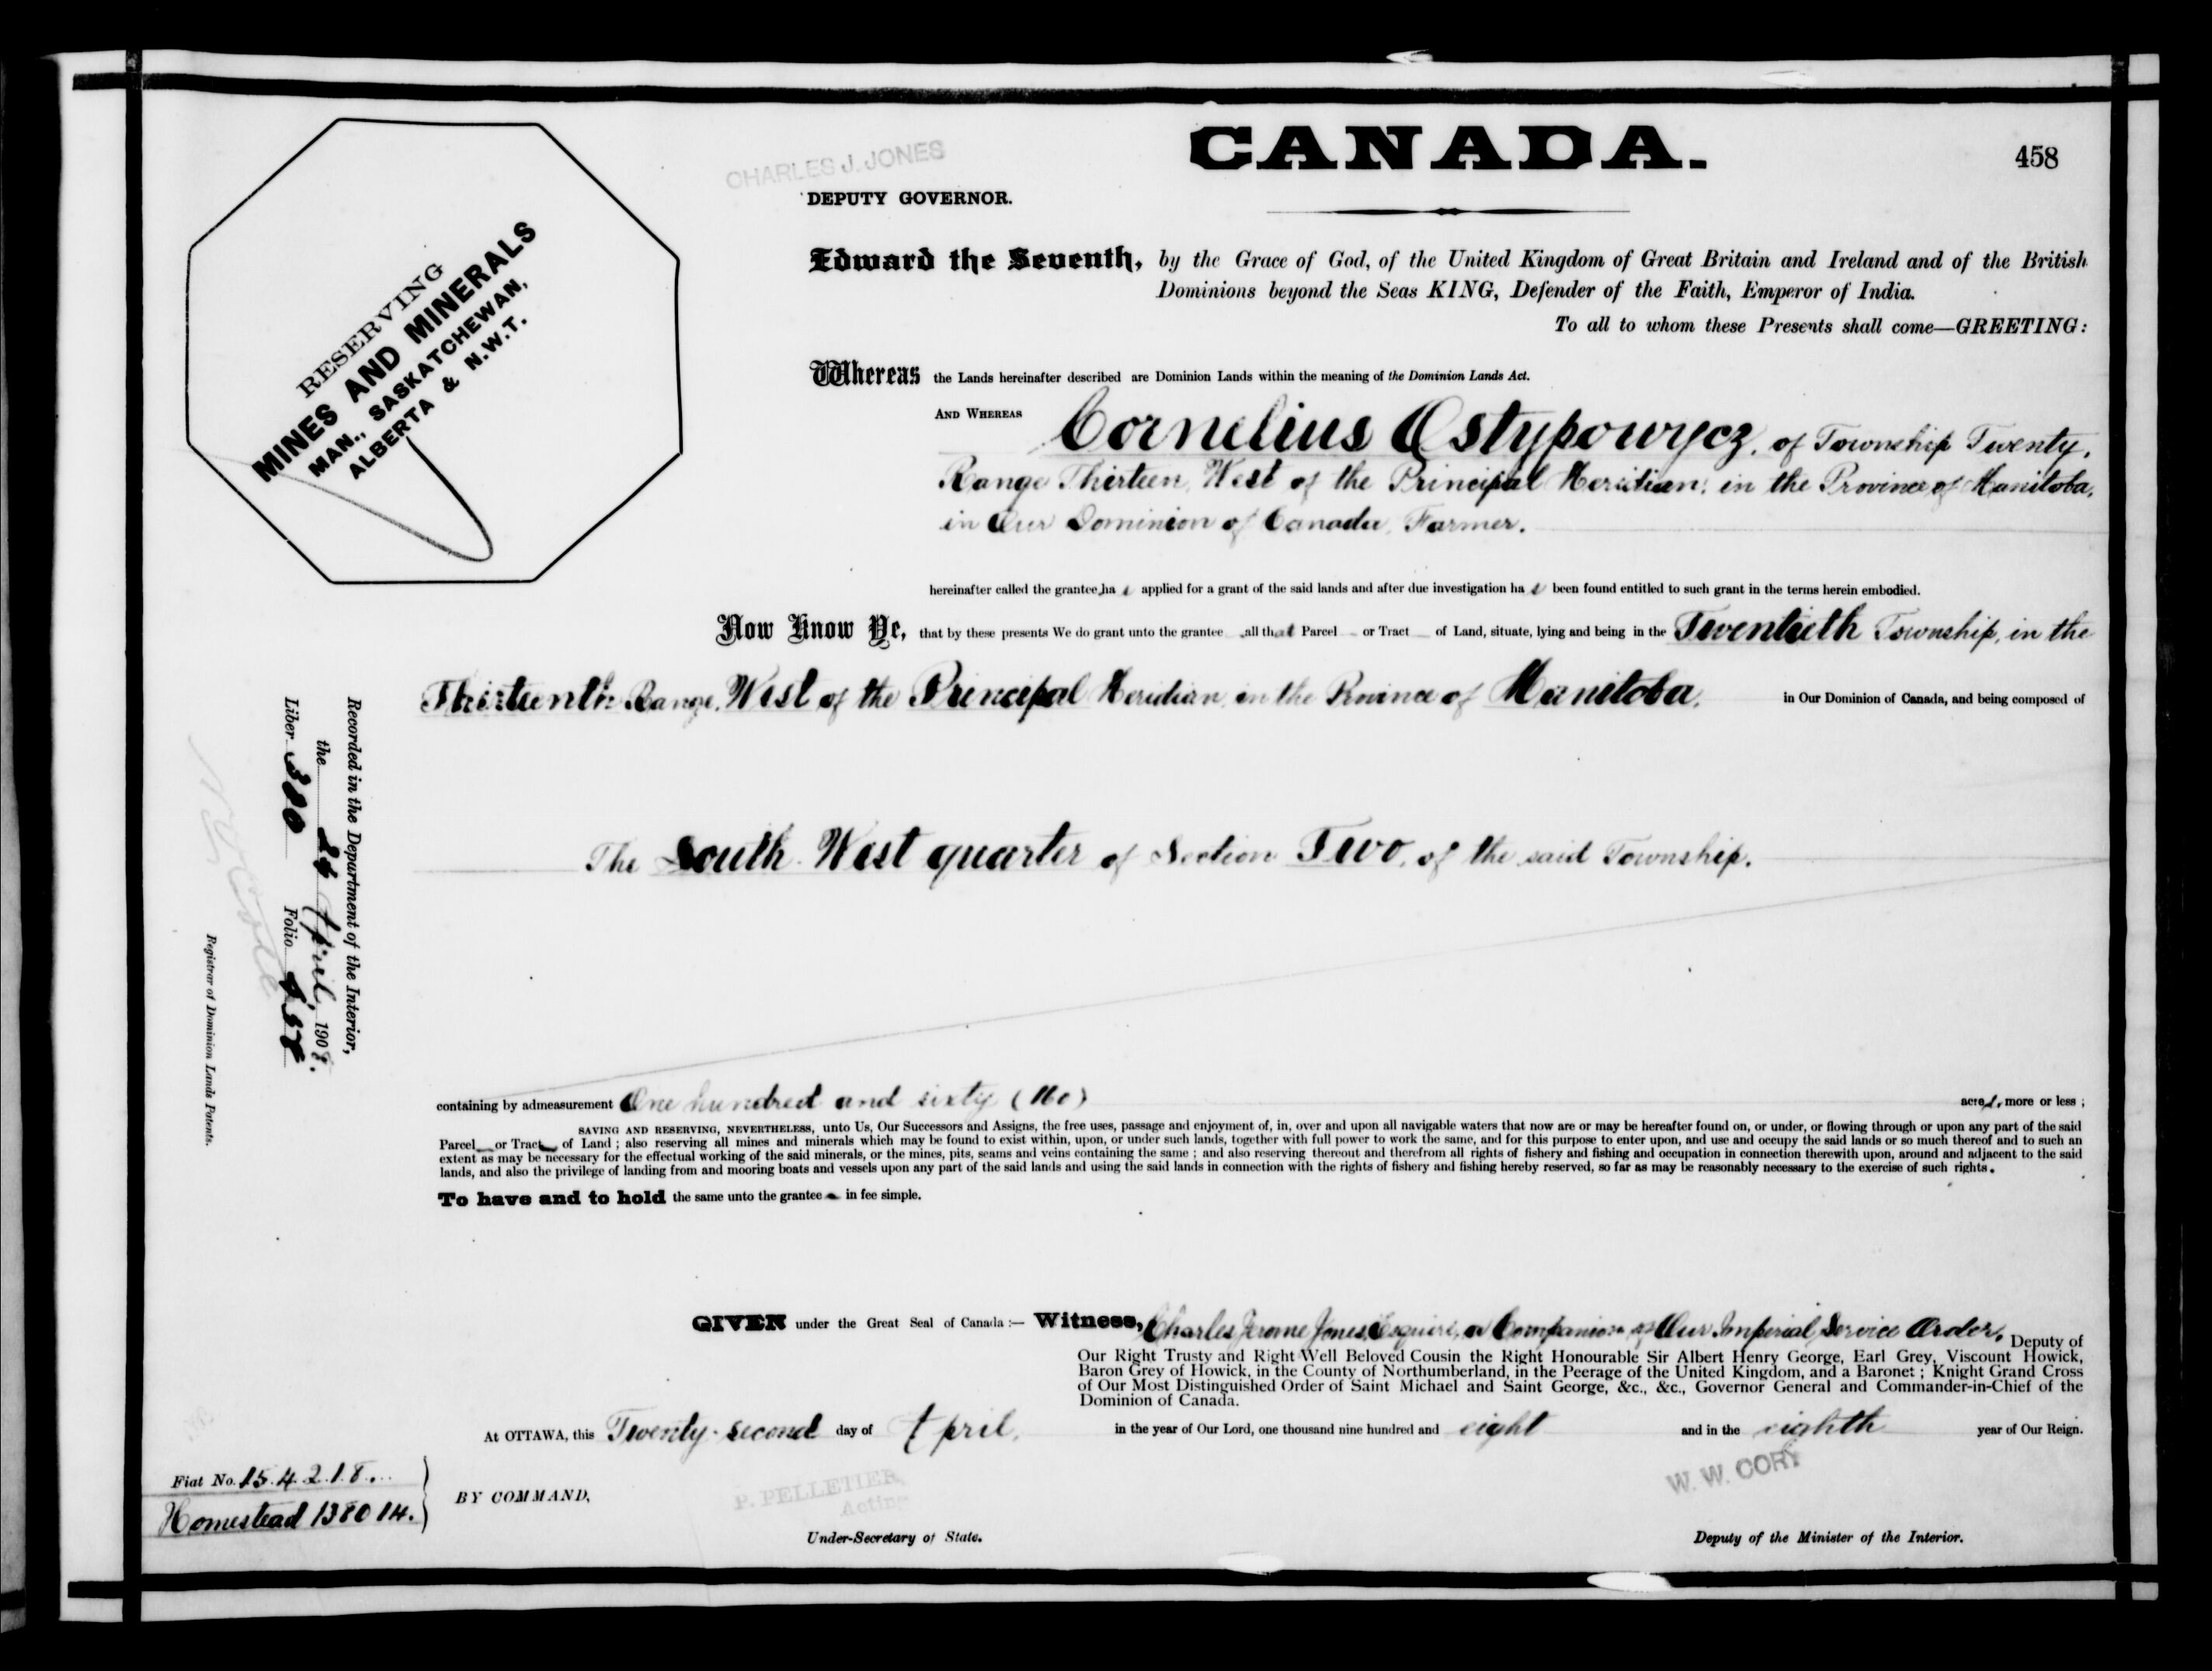 CANADA.
458
CHARLES J. JONES
DEPUTY GOVERNOR.
RESERVING
MINES AND MINERALS
MAN., SASKATCHEWAN,
ALBERTA & N.W.T.
Edward the Seventh, by the Grace of God, of the United Kingdom of Great Britain and Ireland and of the British
Dominions beyond the Seas KING, Defender of the Faith, Emperor of India.
To all to whom these Presents shall come—GREETING:
Whereas the Lands hereinafter described are Dominion Lands within the meaning of the Dominion Lands Act.
AND WHEREAS Cornelius Ostypowycz, of Township Twenty,
Range Thirteen, West of the Principal Meridian, in the Province of Manitoba,
in Our Dominion of Canada, Farmer.
hereinafter called the grantee, has applied for a grant of the said lands and after due investigation has been found entitled to such grant in the terms herein embodied.
Now Know Ye, that by these presents We do grant unto the grantee all that Parcel or Tract of Land, situate, lying and being in the Twentieth Township, in the
Thirteenth Range, West of the Principal Meridian, in the Province of Manitoba, in Our Dominion of Canada, and being composed of
The South West quarter of Section Two, of the said Township.
Recorded in the Department of the Interior,
the 24 April, 1908.
Liber 380 Folio 458
Registrar of Dominion Lands Patents.
containing by admeasurement One hundred and sixty (160) acres, more or less ;
SAVING AND RESERVING, NEVERTHELESS, unto Us, Our Successors and Assigns, the free uses, passage and enjoyment of, in, over and upon all navigable waters that now are or may be hereafter found on, or under, or flowing through or upon any part of the said
Parcel or Tract of Land ; also reserving all mines and minerals which may be found to exist within, upon, or under such lands, together with full power to work the same, and for this purpose to enter upon, and use and occupy the said lands or so much thereof and to such an
extent as may be necessary for the effectual working of the said minerals, or the mines, pits, seams and veins containing the same ; and also reserving thereout and therefrom all rights of fishery and fishing and occupation in connection therewith upon, around and adjacent to the said
lands, and also the privilege of landing from and mooring boats and vessels upon any part of the said lands and using the said lands in connection with the rights of fishery and fishing hereby reserved, so far as may be reasonably necessary to the exercise of such rights.
To have and to hold the same unto the grantee in fee simple.
GIVEN under the Great Seal of Canada :— Witness, Charles Jerome Jones, Esquire, a Companion of Our Imperial Service Order, Deputy of
Our Right Trusty and Right Well Beloved Cousin the Right Honourable Sir Albert Henry George, Earl Grey, Viscount Howick,
Baron Grey of Howick, in the County of Northumberland, in the Peerage of the United Kingdom, and a Baronet ; Knight Grand Cross
of Our Most Distinguished Order of Saint Michael and Saint George, &c., &c., Governor General and Commander-in-Chief of the
Dominion of Canada.
At OTTAWA, this Twenty-second day of April, in the year of Our Lord, one thousand nine hundred and eight and in the eighth year of Our Reign.
Fiat No. 154218.
Homestead 138014.
BY COMMAND,
P. PELLETIER
Acting
Under-Secretary of State.
W. W. CORY
Deputy of the Minister of the Interior.